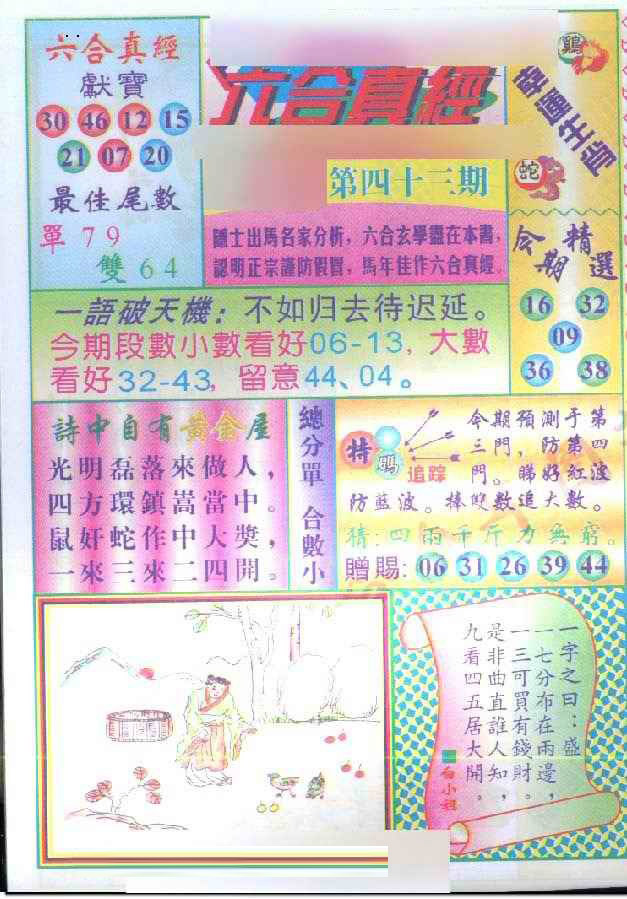 六合真經
獻寶
30 46 12 15
21 07 20
最佳尾數
單 7 9
雙 6 4
六合真經
第四十三期
隱士出馬名家分析,六合玄學盡在本書,
認明正宗謹防假冒,馬年佳作六合真經。
鷄
蛇
今期精選
16 32
09
36 38
一語破天機:不如归去待迟延。
今期段數小數看好06-13,大數
看好32-43,留意44、04。
詩中自有黃金屋
光明磊落來做人,
四方環鎮嵩當中。
鼠奸蛇作中大獎,
一來三來二四開。
總分單 合數小
特碼
追踪
今期預測于第
三門,防第四
門。睇好紅波
防藍波。捧雙數追大數。
猜:四兩千斤力無窮。
贈賜:06 31 26 39 44
一字之曰:盛
一七分布在兩邊,
一三可買有錢財。
是非曲直誰人知,
九看四五居大開。
白小姐